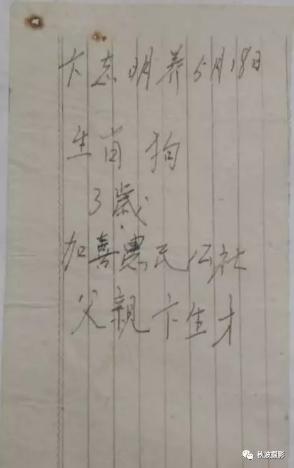 卞志明养5月18日
生肖 狗
3歲
加喜惠民公社
父親卞生才
秋波摄影